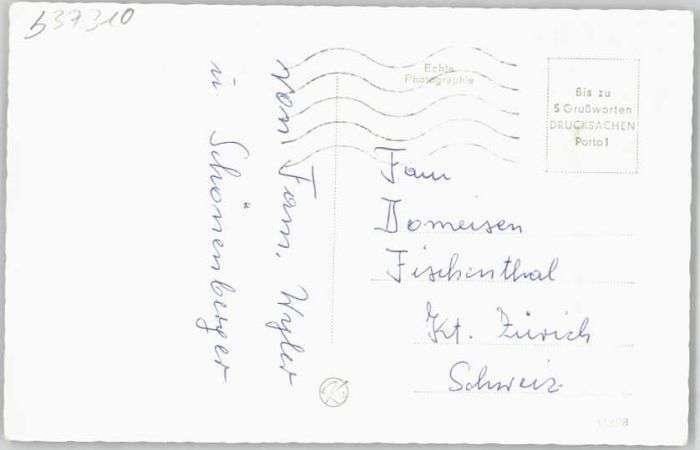 b37310
Echte
Photographie
Bis zu
5 Grußworten
DRUCKSACHEN
Porto!
von Fam. Wyler
u Schönenberger
Fam
Domeisen
Fischenthal
Kt. Zürich
Schweiz